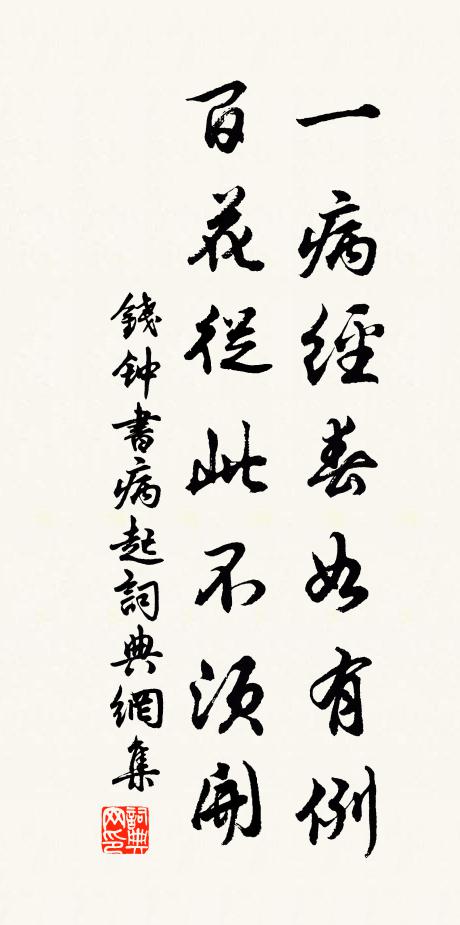 一病經春如有例
百花從此不須開
錢钟書病起詞典網集
詞典网印